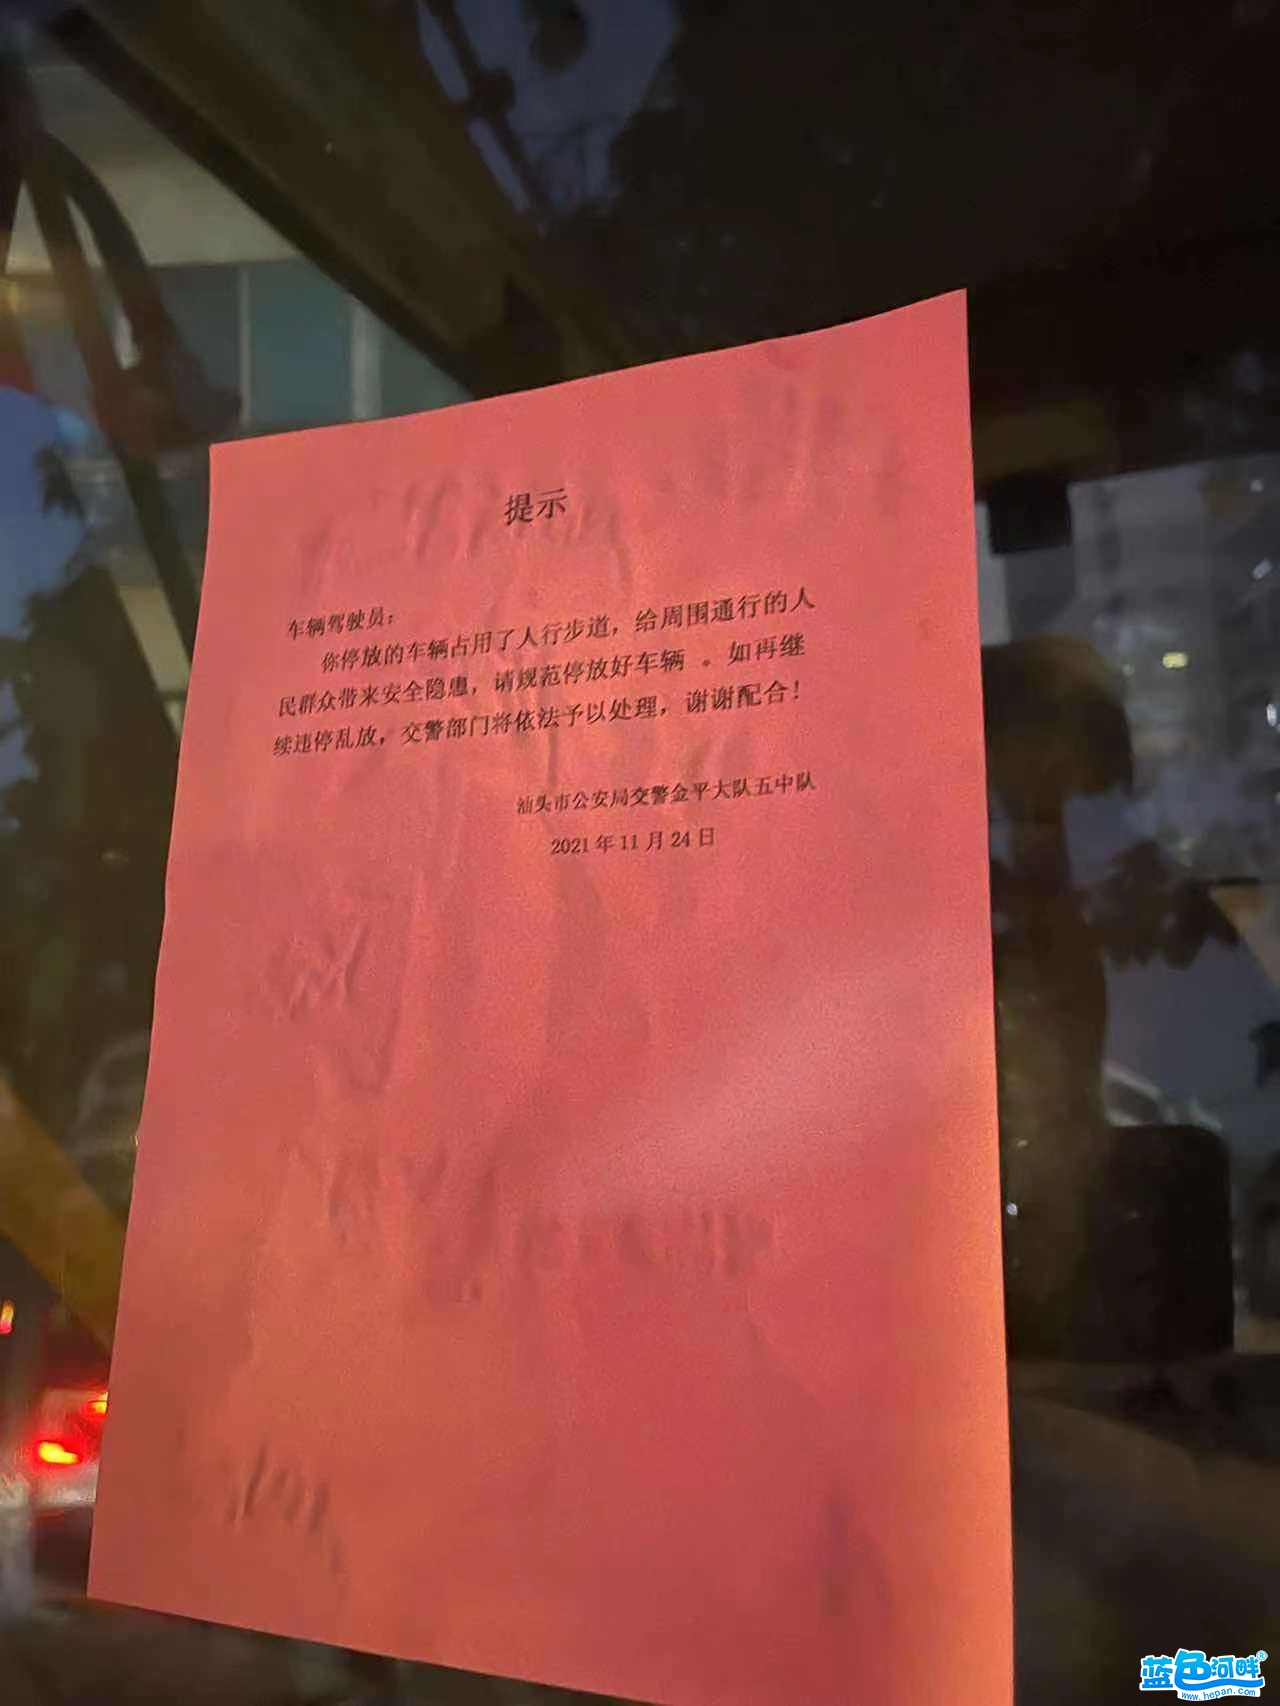 提示
车辆驾驶员：
你停放的车辆占用了人行步道，给周围通行的人
民群众带来安全隐患，请规范停放好车辆 。如再继
续违停乱放，交警部门将依法予以处理，谢谢配合！
汕头市公安局交警金平大队五中队
2021 年 11 月 24 日
蓝色河畔®
www.hepan.com